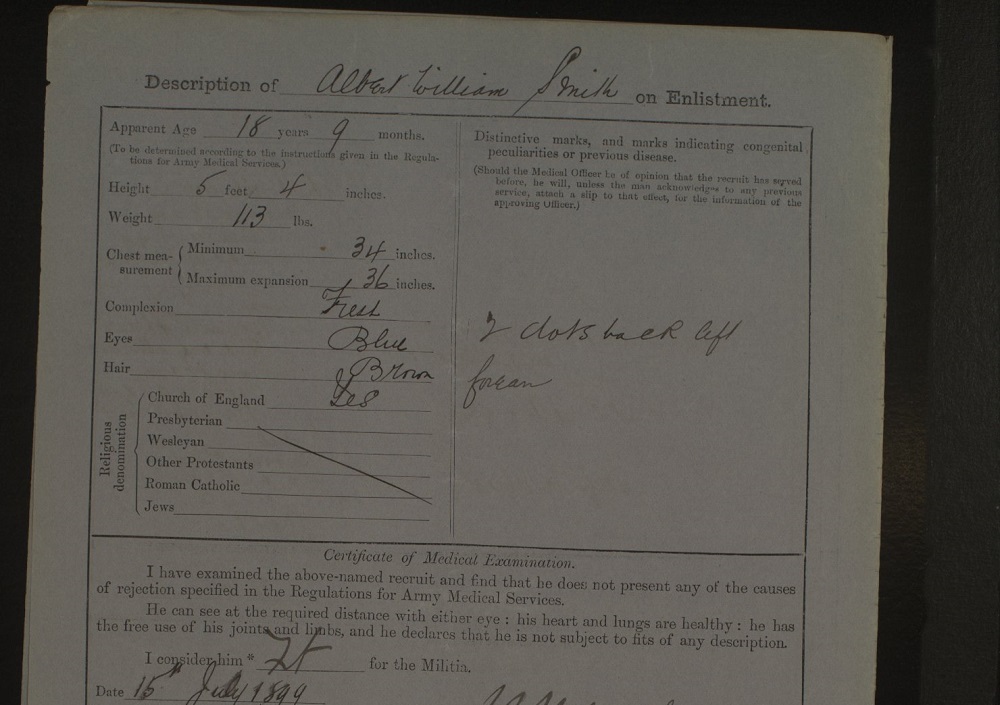 Description of Albert William Smith on Enlistment.
Apparent Age 18 years 9 months.
(To be determined according to the instructions given in the Regula-
tions for Army Medical Services.)
Height 5 feet 4 inches.
Weight 113 lbs.
Chest mea-
surement
Minimum 34 inches.
Maximum expansion 36 inches.
Complexion Fresh
Eyes Blue
Hair Brown
Religious
denomination
Church of England Yes
Presbyterian
Wesleyan
Other Protestants
Roman Catholic
Jews
Distinctive marks, and marks indicating congenital
peculiarities or previous disease.
(Should the Medical Officer be of opinion that the recruit has served
before, he will, unless the man acknowledges to any previous
service, attach a slip to that effect, for the information of the
approving Officer.)
2 dots back left
forearm
Certificate of Medical Examination.
I have examined the above-named recruit and find that he does not present any of the causes
of rejection specified in the Regulations for Army Medical Services.
He can see at the required distance with either eye : his heart and lungs are healthy : he has
the free use of his joints and limbs, and he declares that he is not subject to fits of any description.
I consider him * Fit for the Militia.
Date 15th July 1899